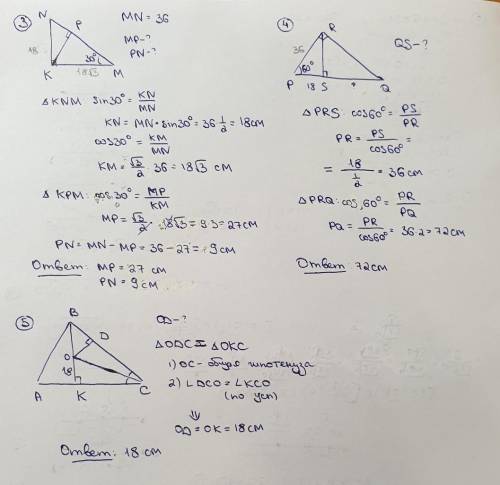 ③ N P K M 18 30° 18√3
MN = 36
MP - ?
PN - ?
△ KNM sin30° = KN/MN
KN = MN · sin30° = 36 1/2 = 18см
cos30° = KM/MN
KM = √3/2 36 = 18√3 см
△ KPM: cos30° = MP/KM
MP = √3/2 · 18√3 = 9·3 = 27см
PN = MN - MP = 36 - 27 = 9см
Ответ: MP = 27 см
PN = 9см
④ R 36 P 60° 18 S Q
QS - ?
△PRS: cos60° = PS/PR
PR = PS/cos60° =
= 18/(1/2) = 36см
△PRQ: cos60° = PR/PQ
PQ = PR/cos60° = 36·2 = 72см
Ответ: 72см
⑤ B D O 18 A K C
OD - ?
△ODC = △OKC
1) OC - общая гипотенуза
2) ∠DCO = ∠KCO
(по усл)
⇓
OD = OK = 18см
Ответ: 18 см